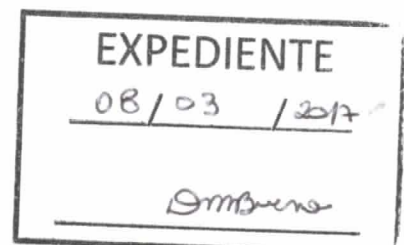 EXPEDIENTE
08/03/2017